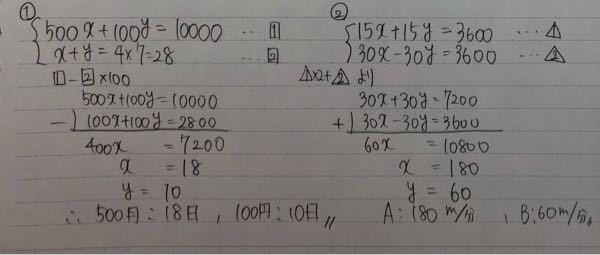 ①
500x+100y=10000 … 1
x+y=4×7=28 … 2
1-2×100
500x+100y=10000
-) 100x+100y=2800
400x =7200
x =18
y = 10
∴ 500円:18日, 100円:10日〃
②
15x+15y=3600 … △1
30x-30y=3600 … △2
△1×2+△2 より
30x+30y=7200
+) 30x-30y=3600
60x =10800
x = 180
y = 60
A:180m/分, B:60m/分〃